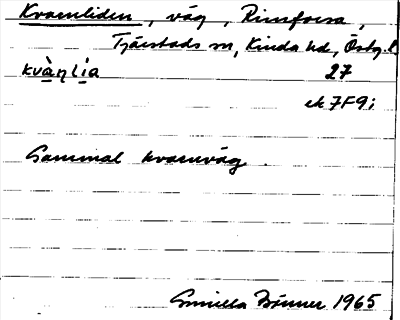 Kvarnliden, väg, Rimforsa,
Tjärstads sn, Kinda hd, Östg. l.
kvàɳlia 27
ek 7F9i
Gammal kvarnväg.
Gunilla 1965